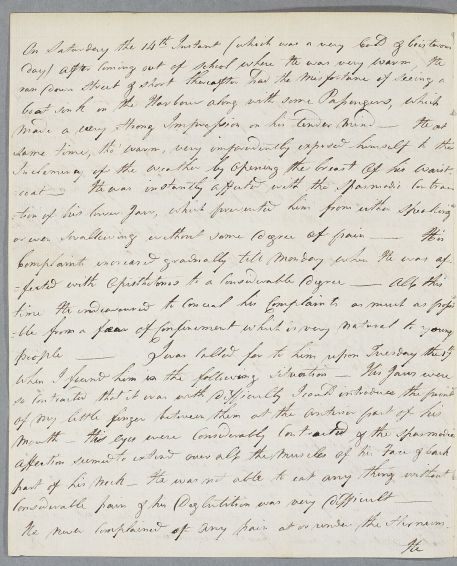 On Saturday the 14th Instant (which was a very Cold & boisterous
day) after coming out of school where He was very warm, He
ran down street & short thereafter had the misfortune of seeing a
boat sink in the Harbour along with some Passengers, which
made a very strong Impression on his tender mind — He at
same time, tho' warm, very imprudently exposed himself to the
Inclemency of the weather by opening the breast of his waist-
-coat — He was instantly affected with the spasmodic Contrac
-tion of his lower Jaw, which prevented him from either speaking
or even swallowing without some degree of pain — This
Complaint increased gradually till Monday when He was af-
-fected with Opisthotonos to a Considerable degree — All this
time He endeavoured to Conceal his Complaints as much as possi
-ble from a fear of Confinement which is very natural to young
people — I was called for to him upon Tuesday the 17
When I found him in the following situation — His Jaws were
so Contracted that it was with difficulty I could introduce the point
of my little finger between them at the anterior part of his
Mouth — His eyes were Considerably Contracted & the spasmodic
affection seemed to extend over all the muscles of his Face & back
part of his Neck — He was not able to eat any thing without
Considerable pain & his Deglutition was very difficult —
He never Complained of any pain at or under the sternum.
He